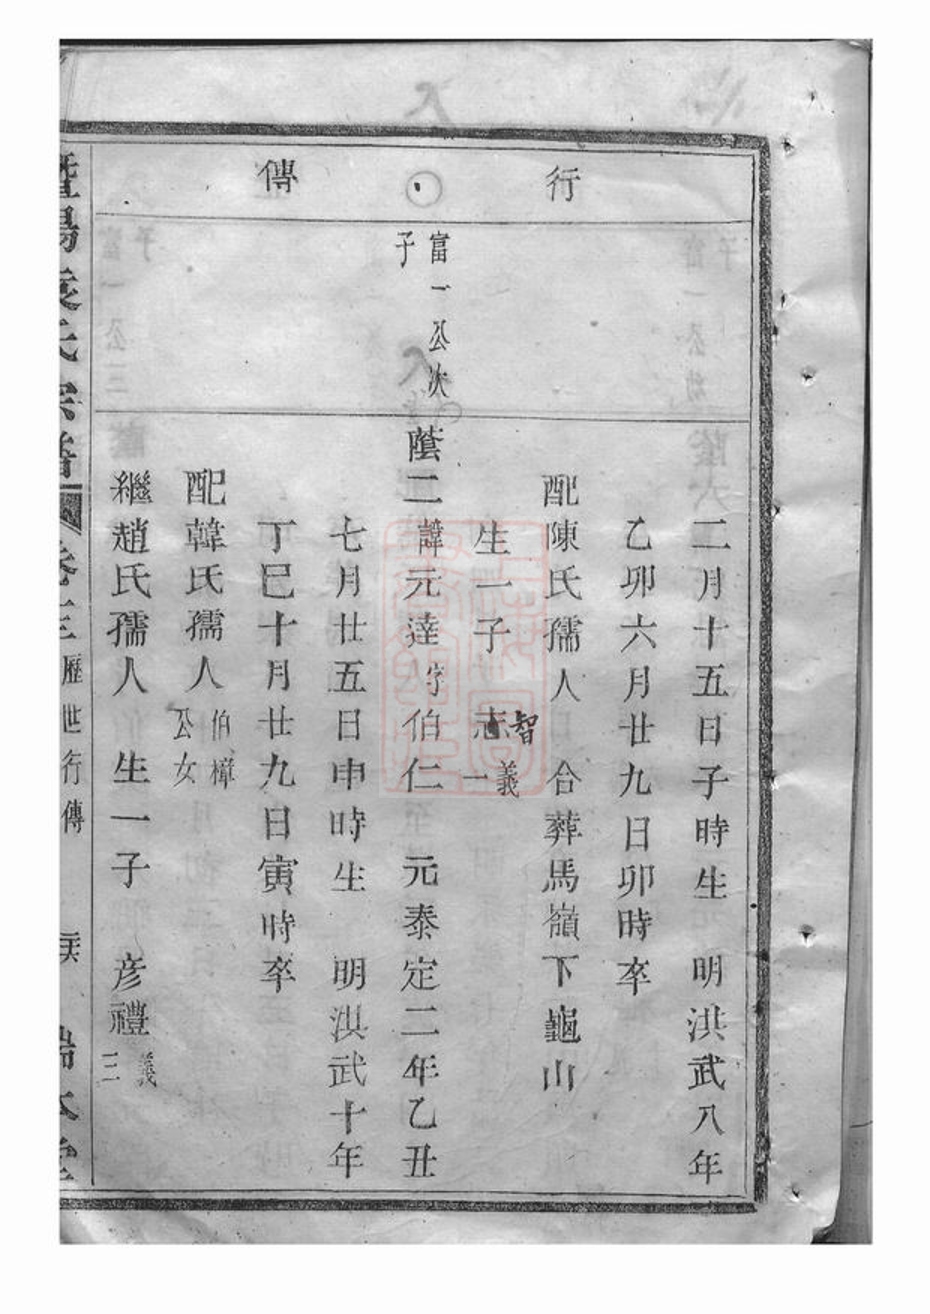 行
傳
二月十五日子時生 明洪武八年
乙卯六月廿九日卯時卒
配陳氏孺人 合葬馬嶺下龜山
生一子 志智 義一
富一公次子
蔭二諱元達字伯仁 元泰定二年乙丑
七月廿五日申時生 明洪武十年
丁巳十月廿九日寅時卒
配韓氏孺人 伯樟公女
繼趙氏孺人 生一子 彦禮 義三
卷三 歷世行傳